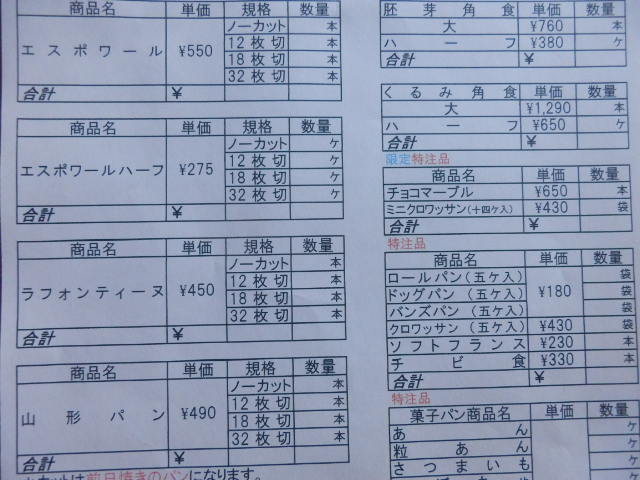 商品名 単価 規格 数量
エスポワール ¥550 ノーカット 本
12枚切 本
18枚切 本
32枚切 本
合計 ¥
商品名 単価 規格 数量
エスポワールハーフ ¥275 ノーカット ヶ
12枚切 ヶ
18枚切 ヶ
32枚切 ヶ
合計 ¥
商品名 単価 規格 数量
ラフォンティーヌ ¥450 ノーカット 本
12枚切 本
18枚切 本
32枚切 本
合計 ¥
商品名 単価 規格 数量
山形パン ¥490 ノーカット 本
12枚切 本
18枚切 本
32枚切 本
合計 ¥
カットは前日焼きのパンになります。
胚芽角食 単価 数量
大 ¥760 本
ハーフ ¥380 ヶ
合計 ¥
くるみ角食 単価 数量
大 ¥1,290 本
ハーフ ¥650 ヶ
合計 ¥
限定特注品
商品名 単価 数量
チョコマーブル ¥650 本
ミニクロワッサン(十四ケ入) ¥430 袋
合計 ¥
特注品
商品名 単価 数量
ロールパン(五ケ入) ¥180 袋
ドッグパン(五ケ入) 袋
バンズパン(五ケ入) 袋
クロワッサン(五ケ入) ¥430 袋
ソフトフランス ¥230 本
チビ食 ¥330 本
合計 ¥
特注品
菓子パン商品名 単価 数量
あん ヶ
粒あん ヶ
さつまいも ヶ